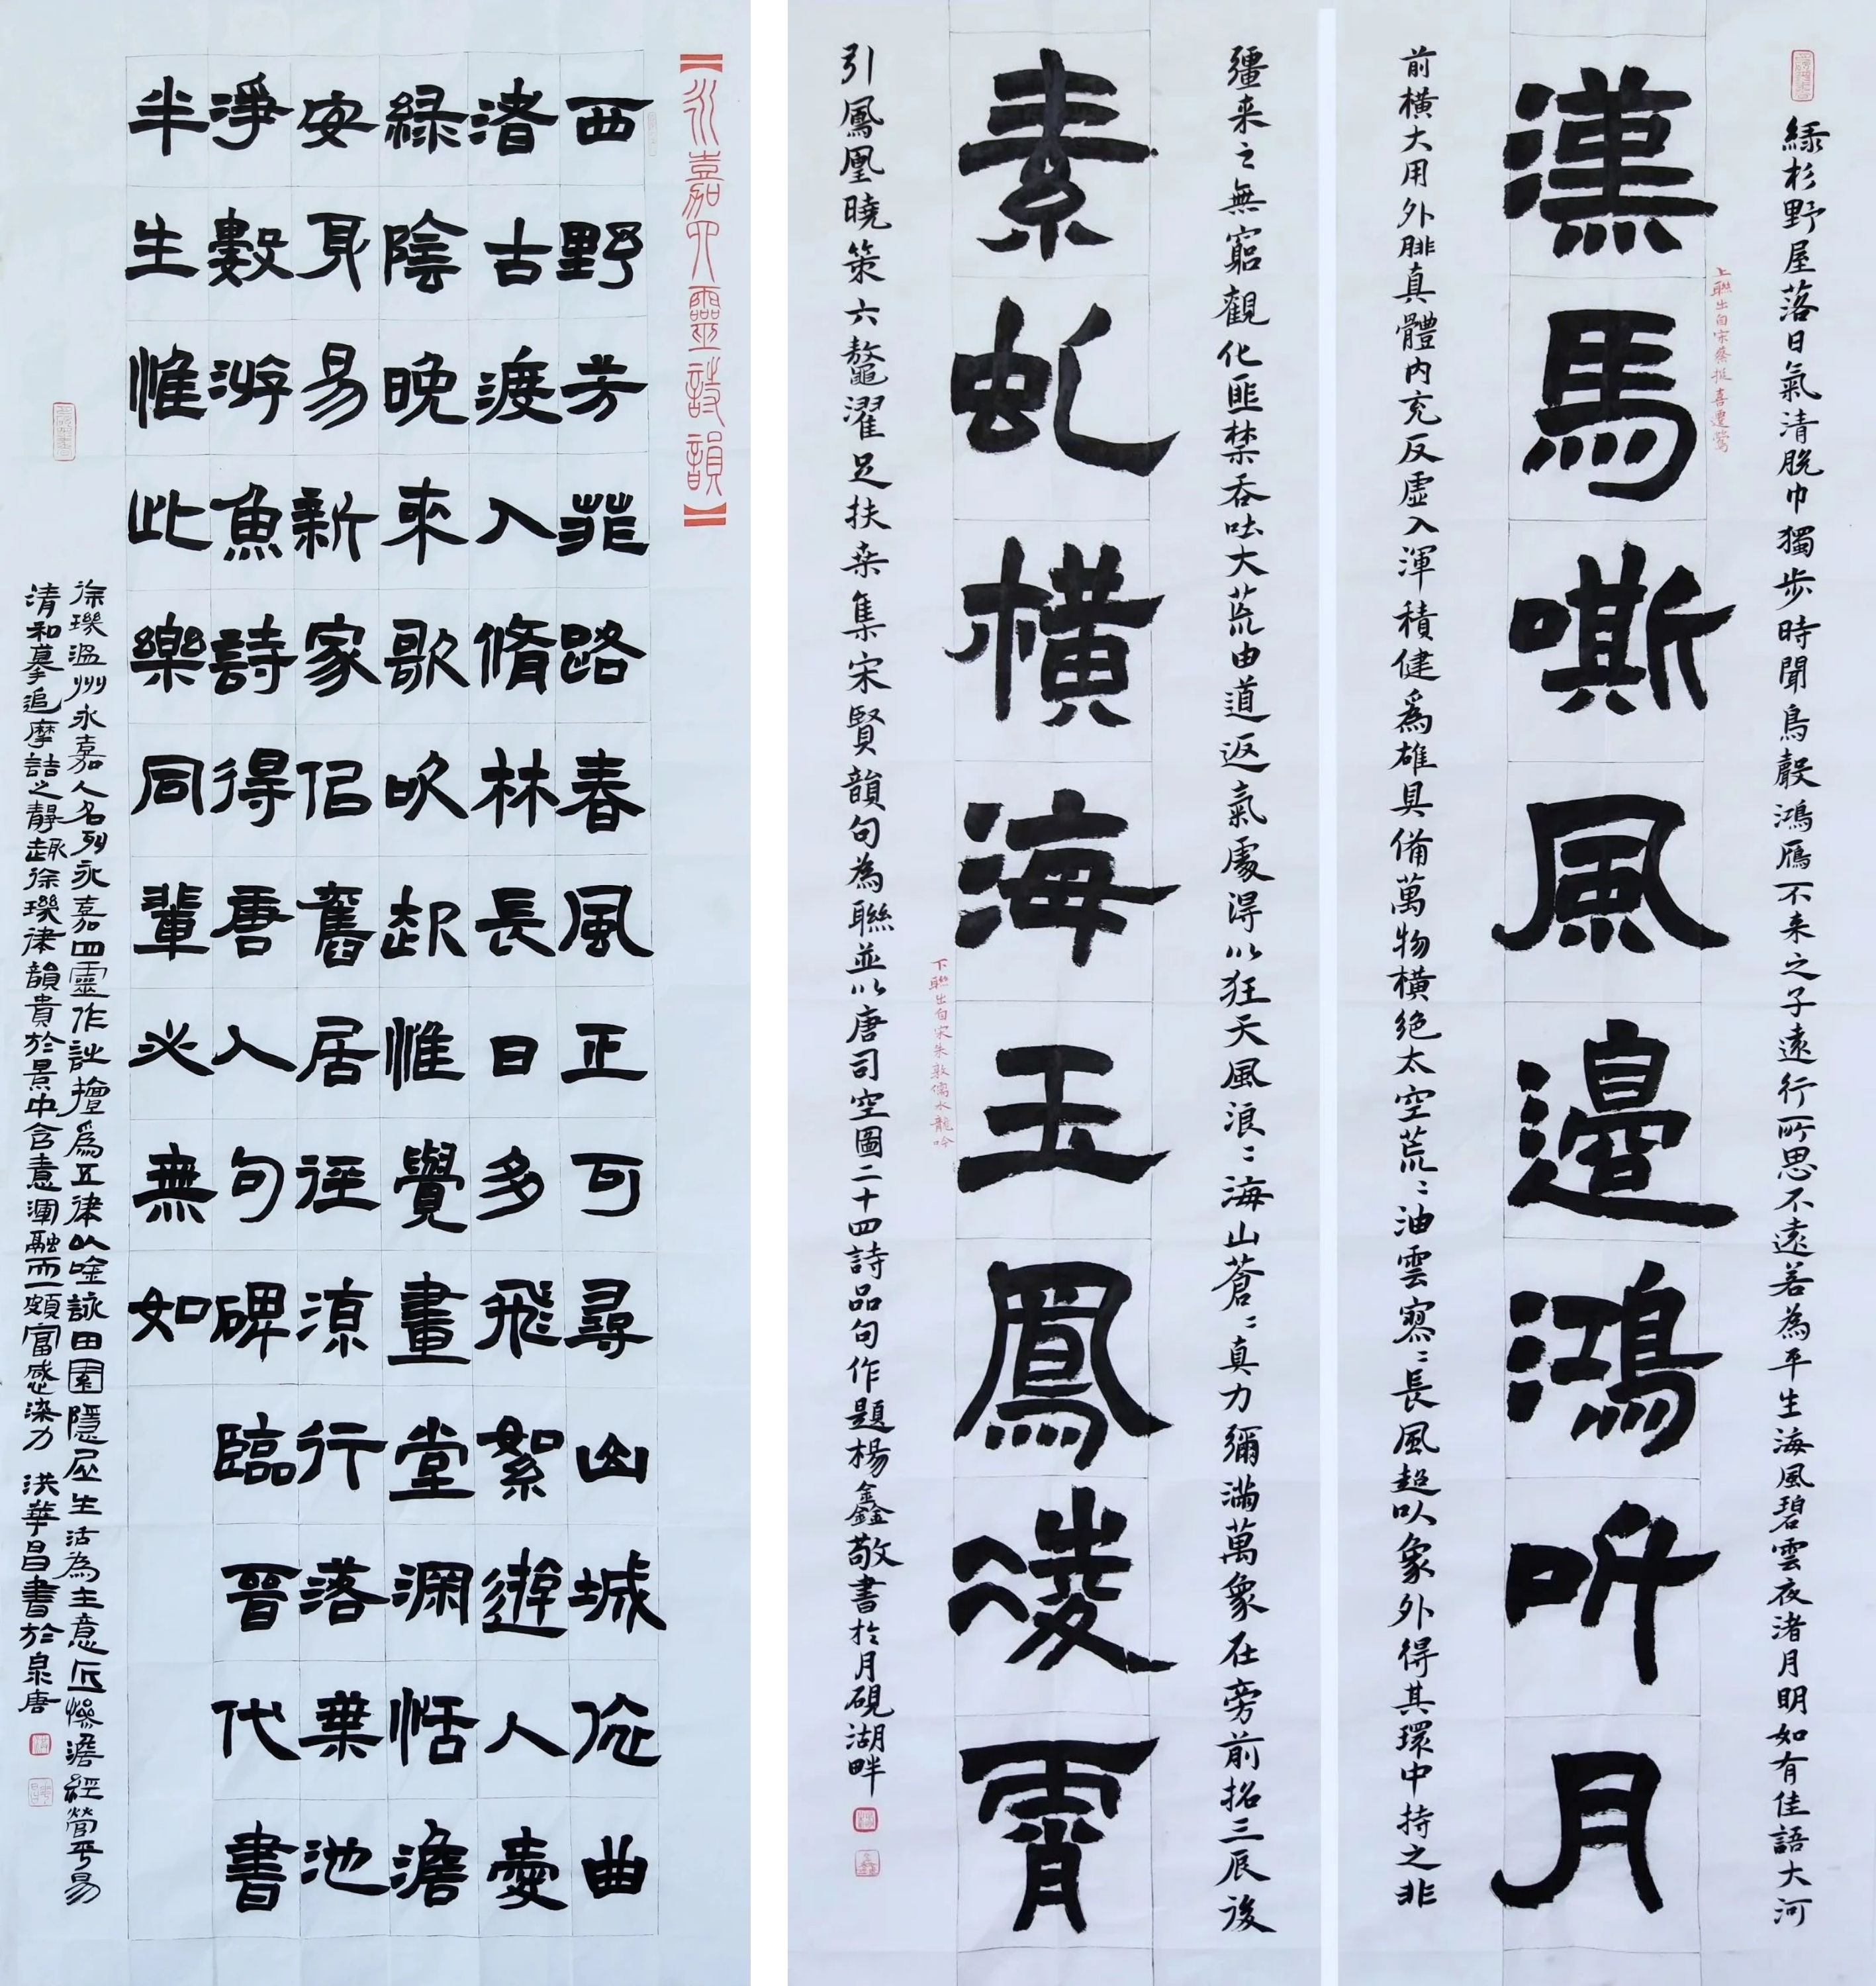 【永嘉四靈詩韻】
西野芳菲路春風正可尋山城依曲
渚古渡入脩林長日多飛絮遊人愛
綠陰晚來歌吹起惟覺畫堂深恬澹
安身易新家佀舊居徑涼行落葉池
淨數游魚詩得唐人句碑臨晉代書
半生惟此樂同輩必無如
徐璣溫州永嘉人名列永嘉四靈作詩擅爲五律以唫詠田園隱居生活為主意匠慘澹經營平易
清和摹追摩詰之靜趣徐璣律韻貴於景中含意渾融而一頗富感染力 洪華昌書於泉唐
綠杉野屋落日氣清脫巾獨步時聞鳥聲鴻雁不来之子遠行所思不遠若為平生海風碧雲夜渚月明如有佳語大河
上聯出自宋蔡挺喜遷鶯
漢馬嘶風邊鴻听月
前橫大用外腓真體內充反虛入渾積健爲雄具備萬物橫絕太空荒〻油雲寥〻長風超以象外得其環中持之非
彊来之無窮觀化匪禁吞吐大荒由道返氣處得以狂天風浪〻海山蒼〻真力彌滿萬象在旁前招三辰後
素虬橫海玉鳳凌霄
下聯出自宋朱敦儒水龍吟
引鳳凰曉策六鰲濯足扶桑集宋賢韻句為聯並以唐司空圖二十四詩品句作題楊鑫敬書於月硯湖畔